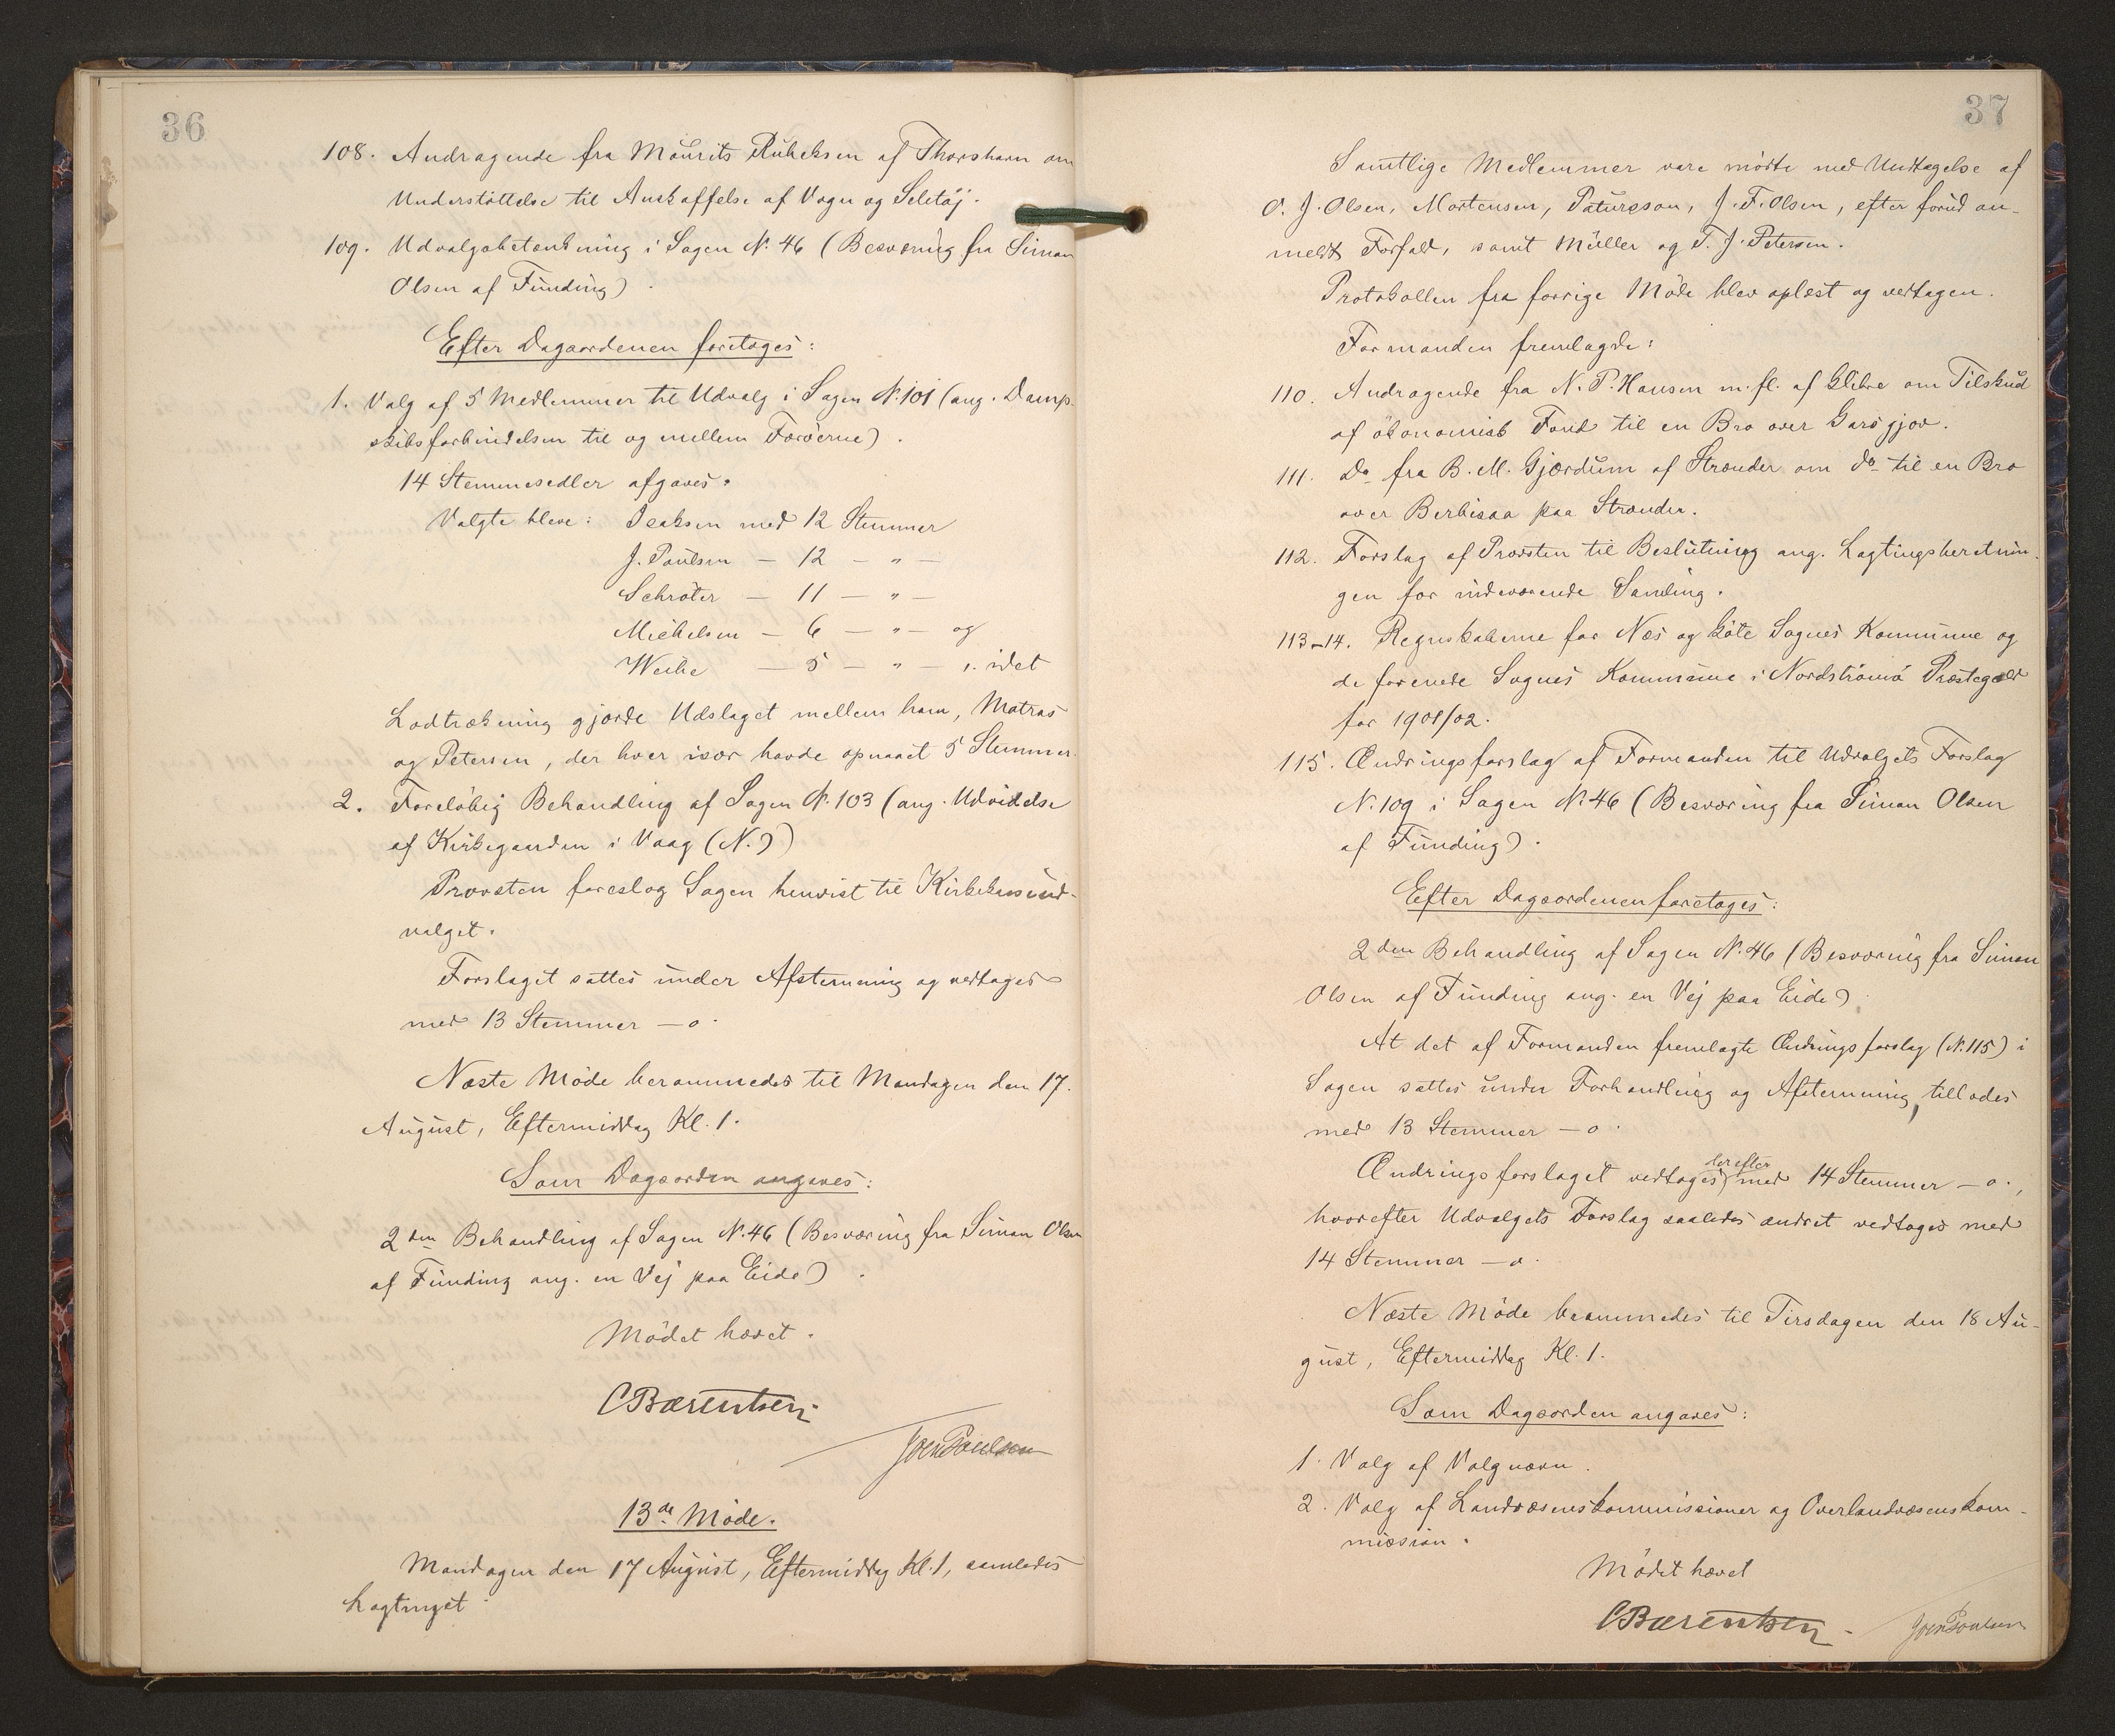 36
108. Andragende fra Mourits Rubeksen af Thorshavn om
Understöttelse til Anskaffelse af Vogn og Seletöj.
109. Udvalgsbetænkning i Sagen N. 46 (Besværing fra Simon
Olsen af Funding).
Efter Dagsordenen foretoges:
1. Valg af 5 Medlemmer til Udvalg i Sagen N. 101 (ang. Damp-
skibsforbindelsen til og mellem Færöerne).
14 Stemmesedler afgaves.
Valgte bleve: Isaksen med 12 Stemmer
J. Poulsen — 12 — " —
Schröter — 11 — " —
Michelsen — 6 — " — og
Weihe — 5 — " —, idet
Lodtrækning gjorde Udslaget mellem ham, Matras
og Petersen, der hver især havde opnaaet 5 Stemmer.
2. Foreløbig Behandling af Sagen N. 103 (ang. Udvidelse
af Kirkegaarden i Vaag (N.))
Provsten foreslog Sagen henvist til Kirkekasseud-
valget.
Forslaget sattes under Afstemning og vedtoges
med 13 Stemmer — o.
Næste Möde berammedes til Mandagen den 17.
August, Eftermiddag Kl. 1.
Som Dagsorden angaves:
2den Behandling af Sagen N. 46 (Besværing fra Simon Olsen
af Funding ang. en Vej paa Eide).
Mödet hævet.
CBærentsen
Joen Poulsen
13de Möde.
Mandagen den 17 August, Eftermiddag Kl. 1, samledes
Lagtinget.
37
Samtlige Medlemmer vare mödte med Undtagelse af
O. J. Olsen, Mortensen, Patursson, J. F. Olsen, efter forud an-
meldt Forfald, samt Müller og T. J. Petersen.
Protokollen fra forrige Möde blev oplæst og vedtagen.
Formanden fremlagde:
110. Andragende fra N. P. Hansen m. fl. af Glibre om Tilskud
af ökonomisk Fond til en Bro over Garsgjov.
111. Do fra B. M. Gjærdum af Strænder om do til en Bro
over Berbisaa paa Strænder.
112. Forslag af Provsten til Beslutning ang. Lagtingsberetnin-
gen for indeværende Samling.
113-14. Regnskaberne for Næs og Göte Sognes Kommune og
de forenede Sognes Kommune i Nordströmö Præstegæld
for 1901/02.
115. Ændringsforslag af Formanden til Udvalgets Forslag
N. 109 i Sagen N. 46 (Besværing fra Simon Olsen
af Funding).
Efter Dagsordenen foretoges:
2den Behandling af Sagen N. 46 (Besværing fra Simon
Olsen af Funding ang. en Vej paa Eide).
At det af Formanden fremlagte Ændringsforslag (N. 115) i
Sagen sattes under Forhandling og Afstemning, tillodes
med 13 Stemmer — o.
Ændringsforslaget vedtoges derefter med 14 Stemmer — o.,
hvorefter Udvalgets Forslag saaledes ændret vedtoges med
14 Stemmer — o.
Næste Möde berammedes til Tirsdagen den 18 Au-
gust, Eftermiddag Kl. 1.
Som Dagsorden angaves:
1. Valg af Valgnævn.
2. Valg af Landvæsenskommissioner og Overlandvæsenskom-
mission.
Mödet hævet
CBærentsen.
Joen Poulsen